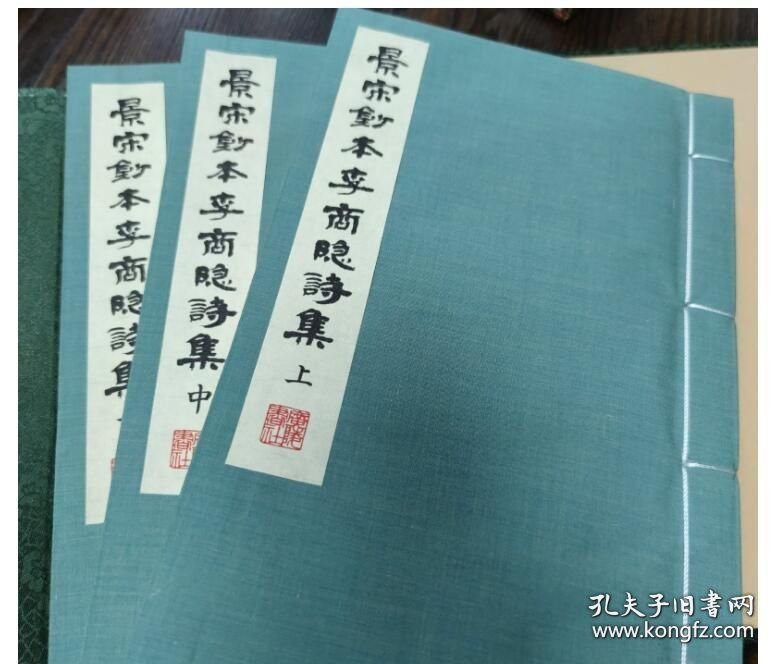 景宋鈔本李商隐詩集 上
景宋鈔本李商隐詩集 中
景宋鈔本李商隐詩集
廣陵書社
孔夫子旧書网
www.kongfz.com